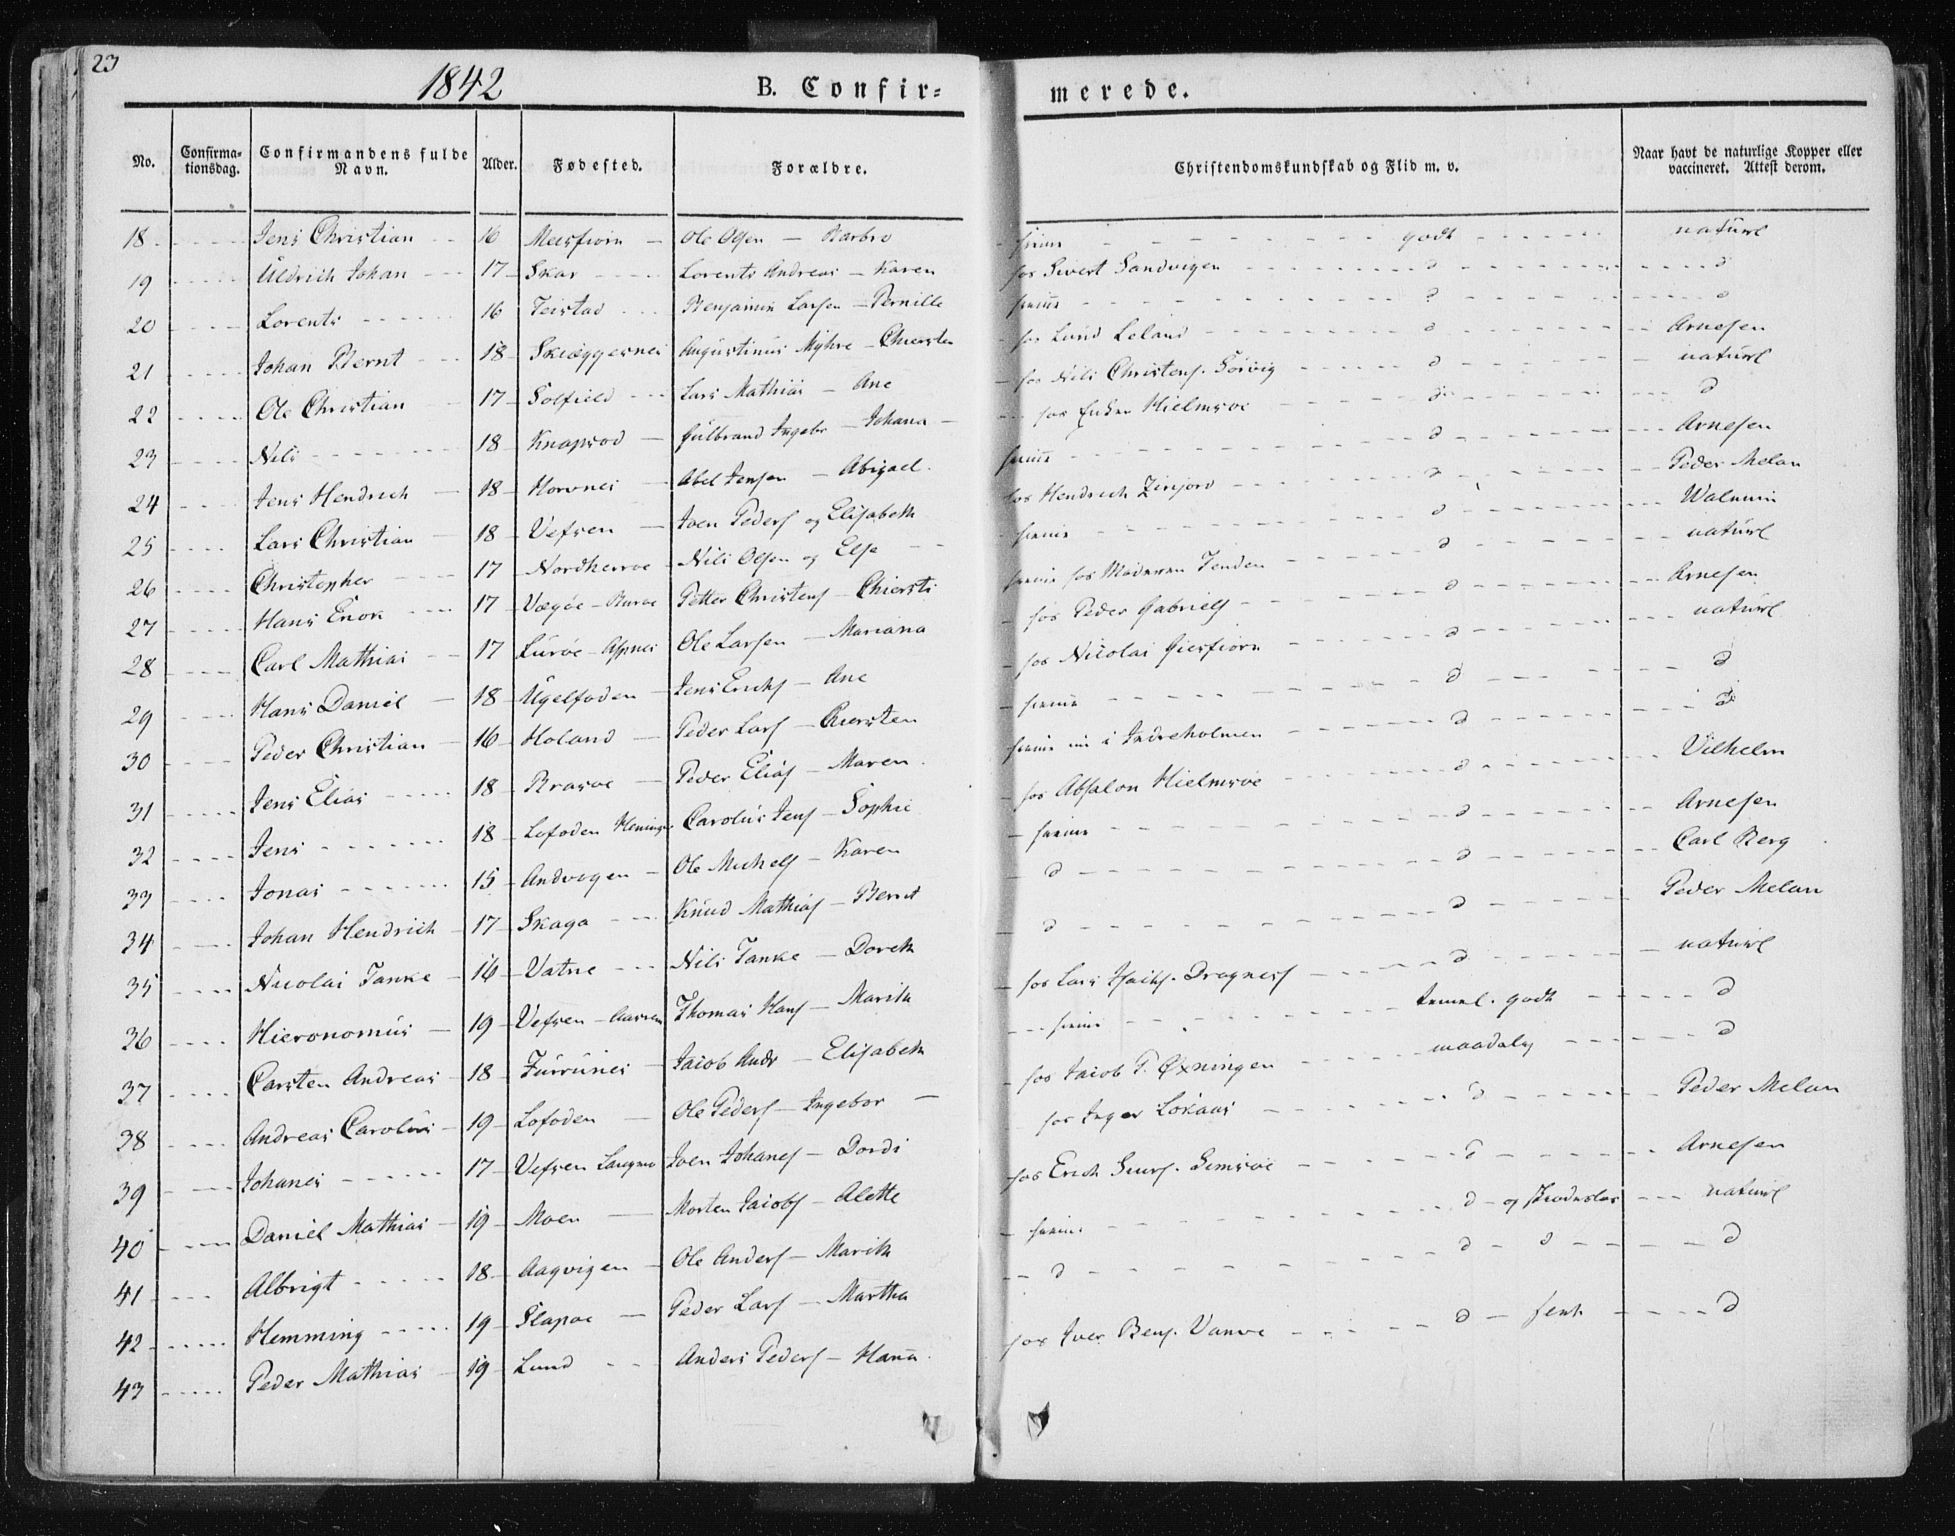 23
1842
B. Confir=
merede.
No. Confirma-tionsdag. Confirmandens fulde Navn. Alder. Fødested. Forældre. Christendomskundskab og Flid m. v. Naar havt de naturlige Kopper eller vaccineret. Attest derom.
18 Jens Christian 16 Meisfiorn Ole Olsen - Barbro hieme godt naturl
19 Uldrich Johan 17 Skar Lorents Andreas - Karen hos Sivert Sandvigen d d
20 Lorents 16 Teistad Benjamin Larsen - Pernille hieme d d
21 Johan Bernt 18 Skieggesnes Augustinus Myhre - Chiersten hos Lund Leland d Arnesen
22 Ole Christian 17 Solfield Lars Mathias - Ane hos Nils Christens. Sörvig d naturl
23 Nils 18 Knapsod Gulbrand Ingebr - Johana hos Enken Hielmsöe d d
24 Jens Hendrich 18 Horvnes Abel Jensen - Abigael. hieme d Arnesen
25 Lars Christian 18 Vefsen Iven Peders og Elisabeth hos Hendrich d Peder Melan
26 Christopher 17 Nordherröe Nils Olsen og Else hieme d Walnum
27 Hans Enok 17 Vægöe - Petter Christens - Chiersti hieme hos Moderen Tenden d naturl
28 Carl Mathias 17 Luröe - Aspnes Ole Larsen - Mariana hos Peder Gabriels d Arnesen
29 Hans Daniel 18 Ugelfoden Jens Erichs - Ane hos Nicolai Giesfiorn d naturl
30 Peder Christian 16 Holand Peder Lars - Chiersten hieme d d
31 Jens Elias 18 Brasöe Peder Elias - Maren. hieme nu i Indreholmen d d
32 Jens 18 Lofoden Carolus Jens - Sophie hos Absalon Hielmsöe d Vilhelm
33 Jonas 15 Andvigen Ole Michels - Karen hieme d Arnesen
34 Johan Hendrich 17 Skaga Knud Mathias - Bernt d d Carl Berg
35 Nicolai Tanke 16 Vatne Nils Tanke - Doreth d d Peder Melan
36 Hieronomus 19 Vefsen - Thomas Hans - Marith hos Lars Dragnes d naturl
37 Carsten Andreas 18 Furrunes Jacob Andr - Elisabeth hieme temel. godt d
38 Andreas Carolus 19 Lofoden Ole Peders - Ingebor hos Jacob P. Øxningen maadelig d
39 Johanes 17 Vefsen Iven Johanes - Dordi hos Inger Lokaas d Peder Melan
40 Daniel Mathias 19 Moen Morten Jacobs - Alette hos Erich d Arnesen
41 Albrigt 18 Aagvigen Ole Anders - Marith hieme d - og naturl
42 Hemming 19 Slapöe Peder Lars - Martha d d - d d
43 Peder Mathias 19 Lund Anders Peders - Hana. hos Iver Bens. d - sent d